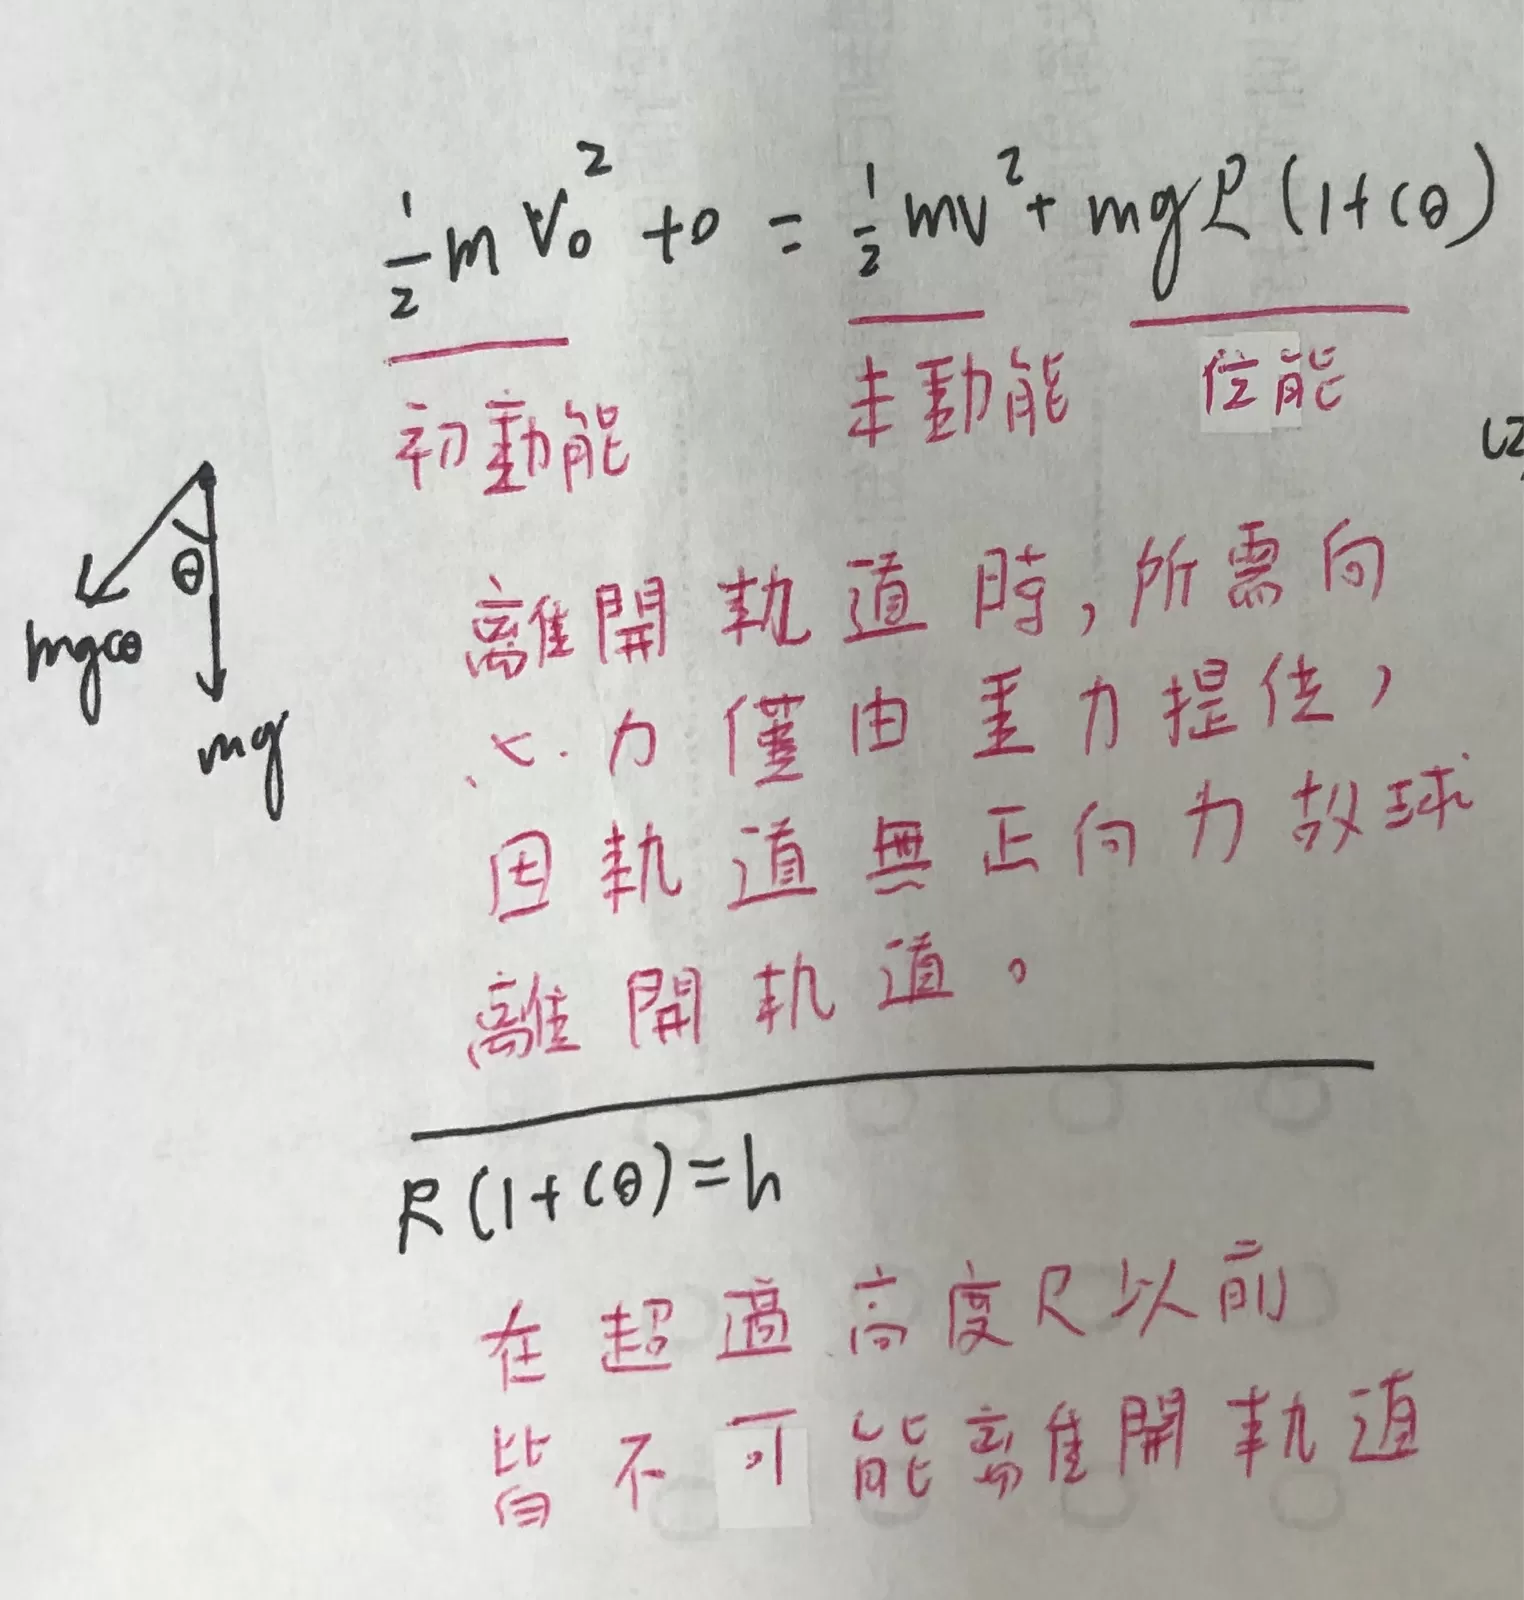 ½mV₀² + 0 = ½mv² + mgR(1+cθ)
初動能 末動能 位能
θ
mgcθ
mg
離開軌道時,所需向
心力僅由重力提供,
因軌道無正向力故球
離開軌道。
R(1+cθ)=h
在超過高度R以前
皆不可能離開軌道